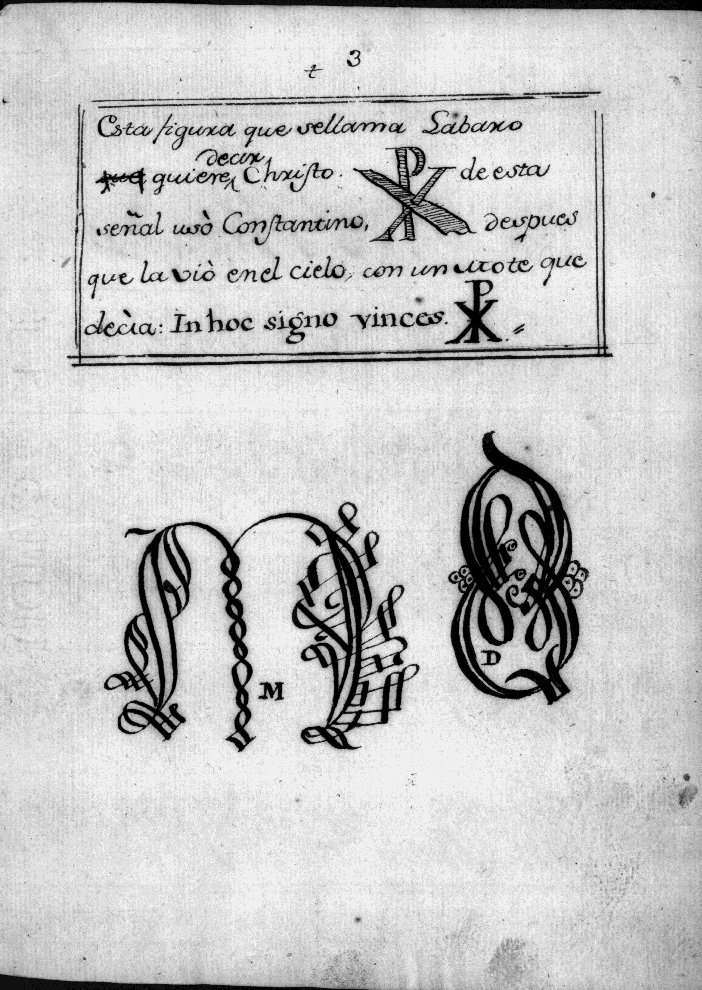 t 3
Esta figura que sellama Labaro
decir
que quiere Christo. ☧ de esta
señal usò Constantino, despues
que la viò enel cielo, con un mote que
decìa: In hoc signo vinces. ☧
M
D